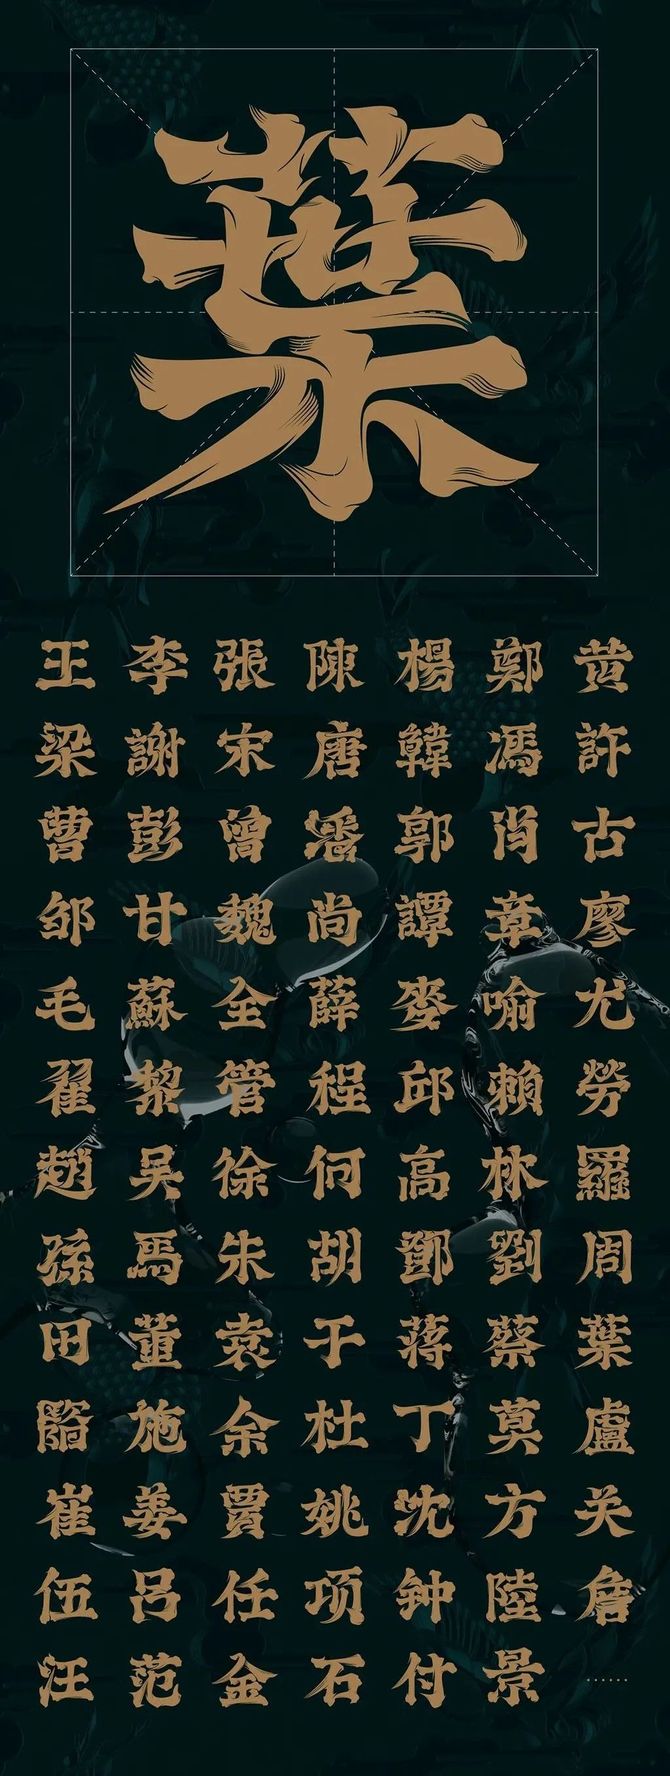 葉
王 李 張 陳 楊 鄭 黄
梁 謝 宋 唐 韓 馮 許
曹 彭 曾 潘 郭 肖 古
邹 甘 魏 尚 譚 章 廖
毛 蘇 全 薛 麥 喻 尤
翟 黎 管 程 邱 賴 勞
趙 吴 徐 何 高 林 羅
孫 馬 朱 胡 鄧 劉 周
田 董 袁 于 蒋 蔡 葉
施 余 杜 丁 莫 盧
崔 姜 賈 姚 沈 方 关
伍 吕 任 项 钟 陸 詹
汪 范 金 石 付 景 ······